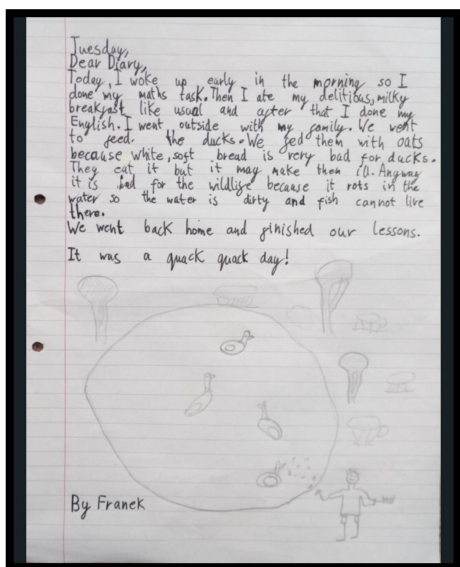 Tuesday,
Dear Diary,
Today, I woke up early in the morning so I
done my maths task. Then I ate my delitious, milky
breakfast like usual and after that I done my
English. I went outside with my family. We went
to feed the ducks. We fed them with oats
because white, soft bread is very bad for ducks.
They eat it but it may make them ill. Anyway
it is bad for the wildlife because it rots in the
water so the water is dirty and fish cannot live
there.
We went back home and finished our lessons.
It was a quack quack day!
By Franek